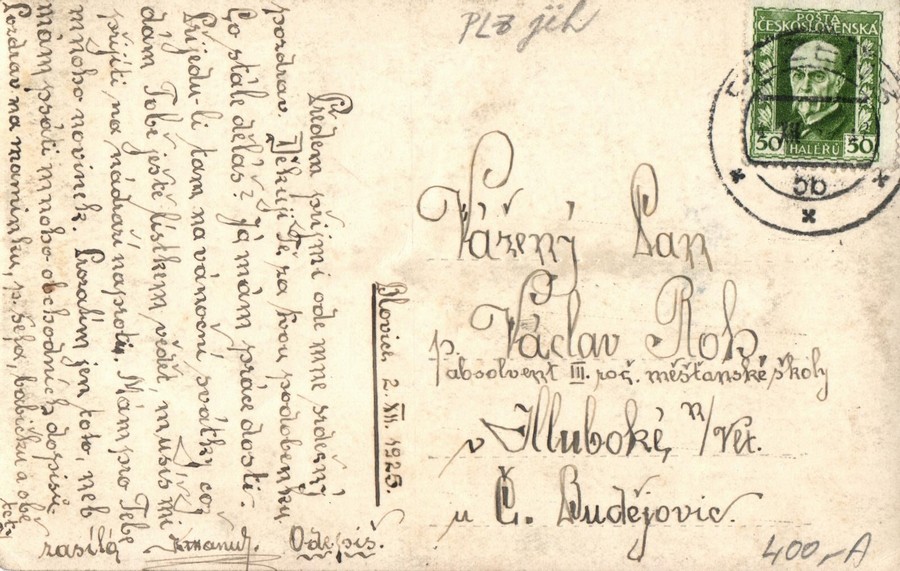 PLZ jih
POŠTA
ČESKOSLOVENSKA
50 HALÉŘŮ 50
5b
Předem přijmi ode mne srdečný
pozdrav. Děkuji Ti za tvou podobenku.
Co stále děláš? Já mám práce dosti.
Přijedu-li tam na vánoční svátky, což
dám Tobě ještě lístkem vědět, musíš mi
přijíti na nádraží naproti. Mám pro Tebe
mnoho novinek. Pozatím jen toto, neb
mám psáti mnoho obchodních dopisů.
Pozdrav na maminku, p. Šefa, babičku a obě
tety
zasílá
Odepiš.
Blovice, 2. XII. 1925.
Vážený Pan
p. Václav Roh
absolvent III. roč. měšťanské školy
v Hluboké, n/Vlt.
u Č. Budějovic.
400,- A